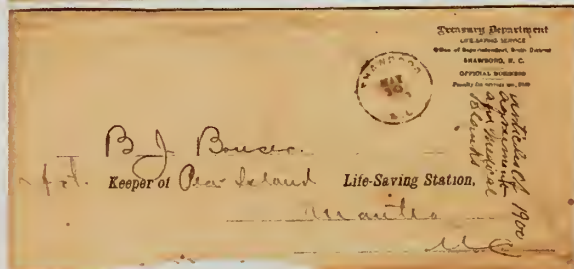 Treasury Department
LIFE-SAVING SERVICE
Office of Superintendent, Sixth District
SHAWBORO, N. C.
OFFICIAL BUSINESS
Penalty for private use, $300
SHAWBORO
MAY
30
N.C.
Articles of 1900
agreement
and medical
Blanks
B. J. Bowser.
Keeper of Pea Island Life-Saving Station,
Manteo
N.C.